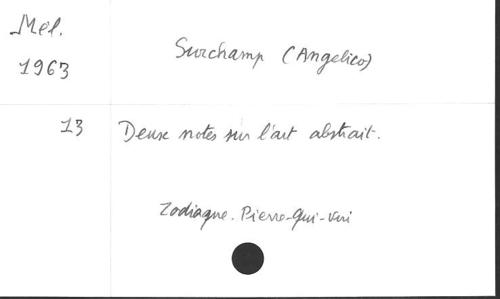 Mel.
1963
Surchamp (Angelico)
13 Deux notes sur l'art abstrait.
Zodiaque. Pierre-Qui-Vire